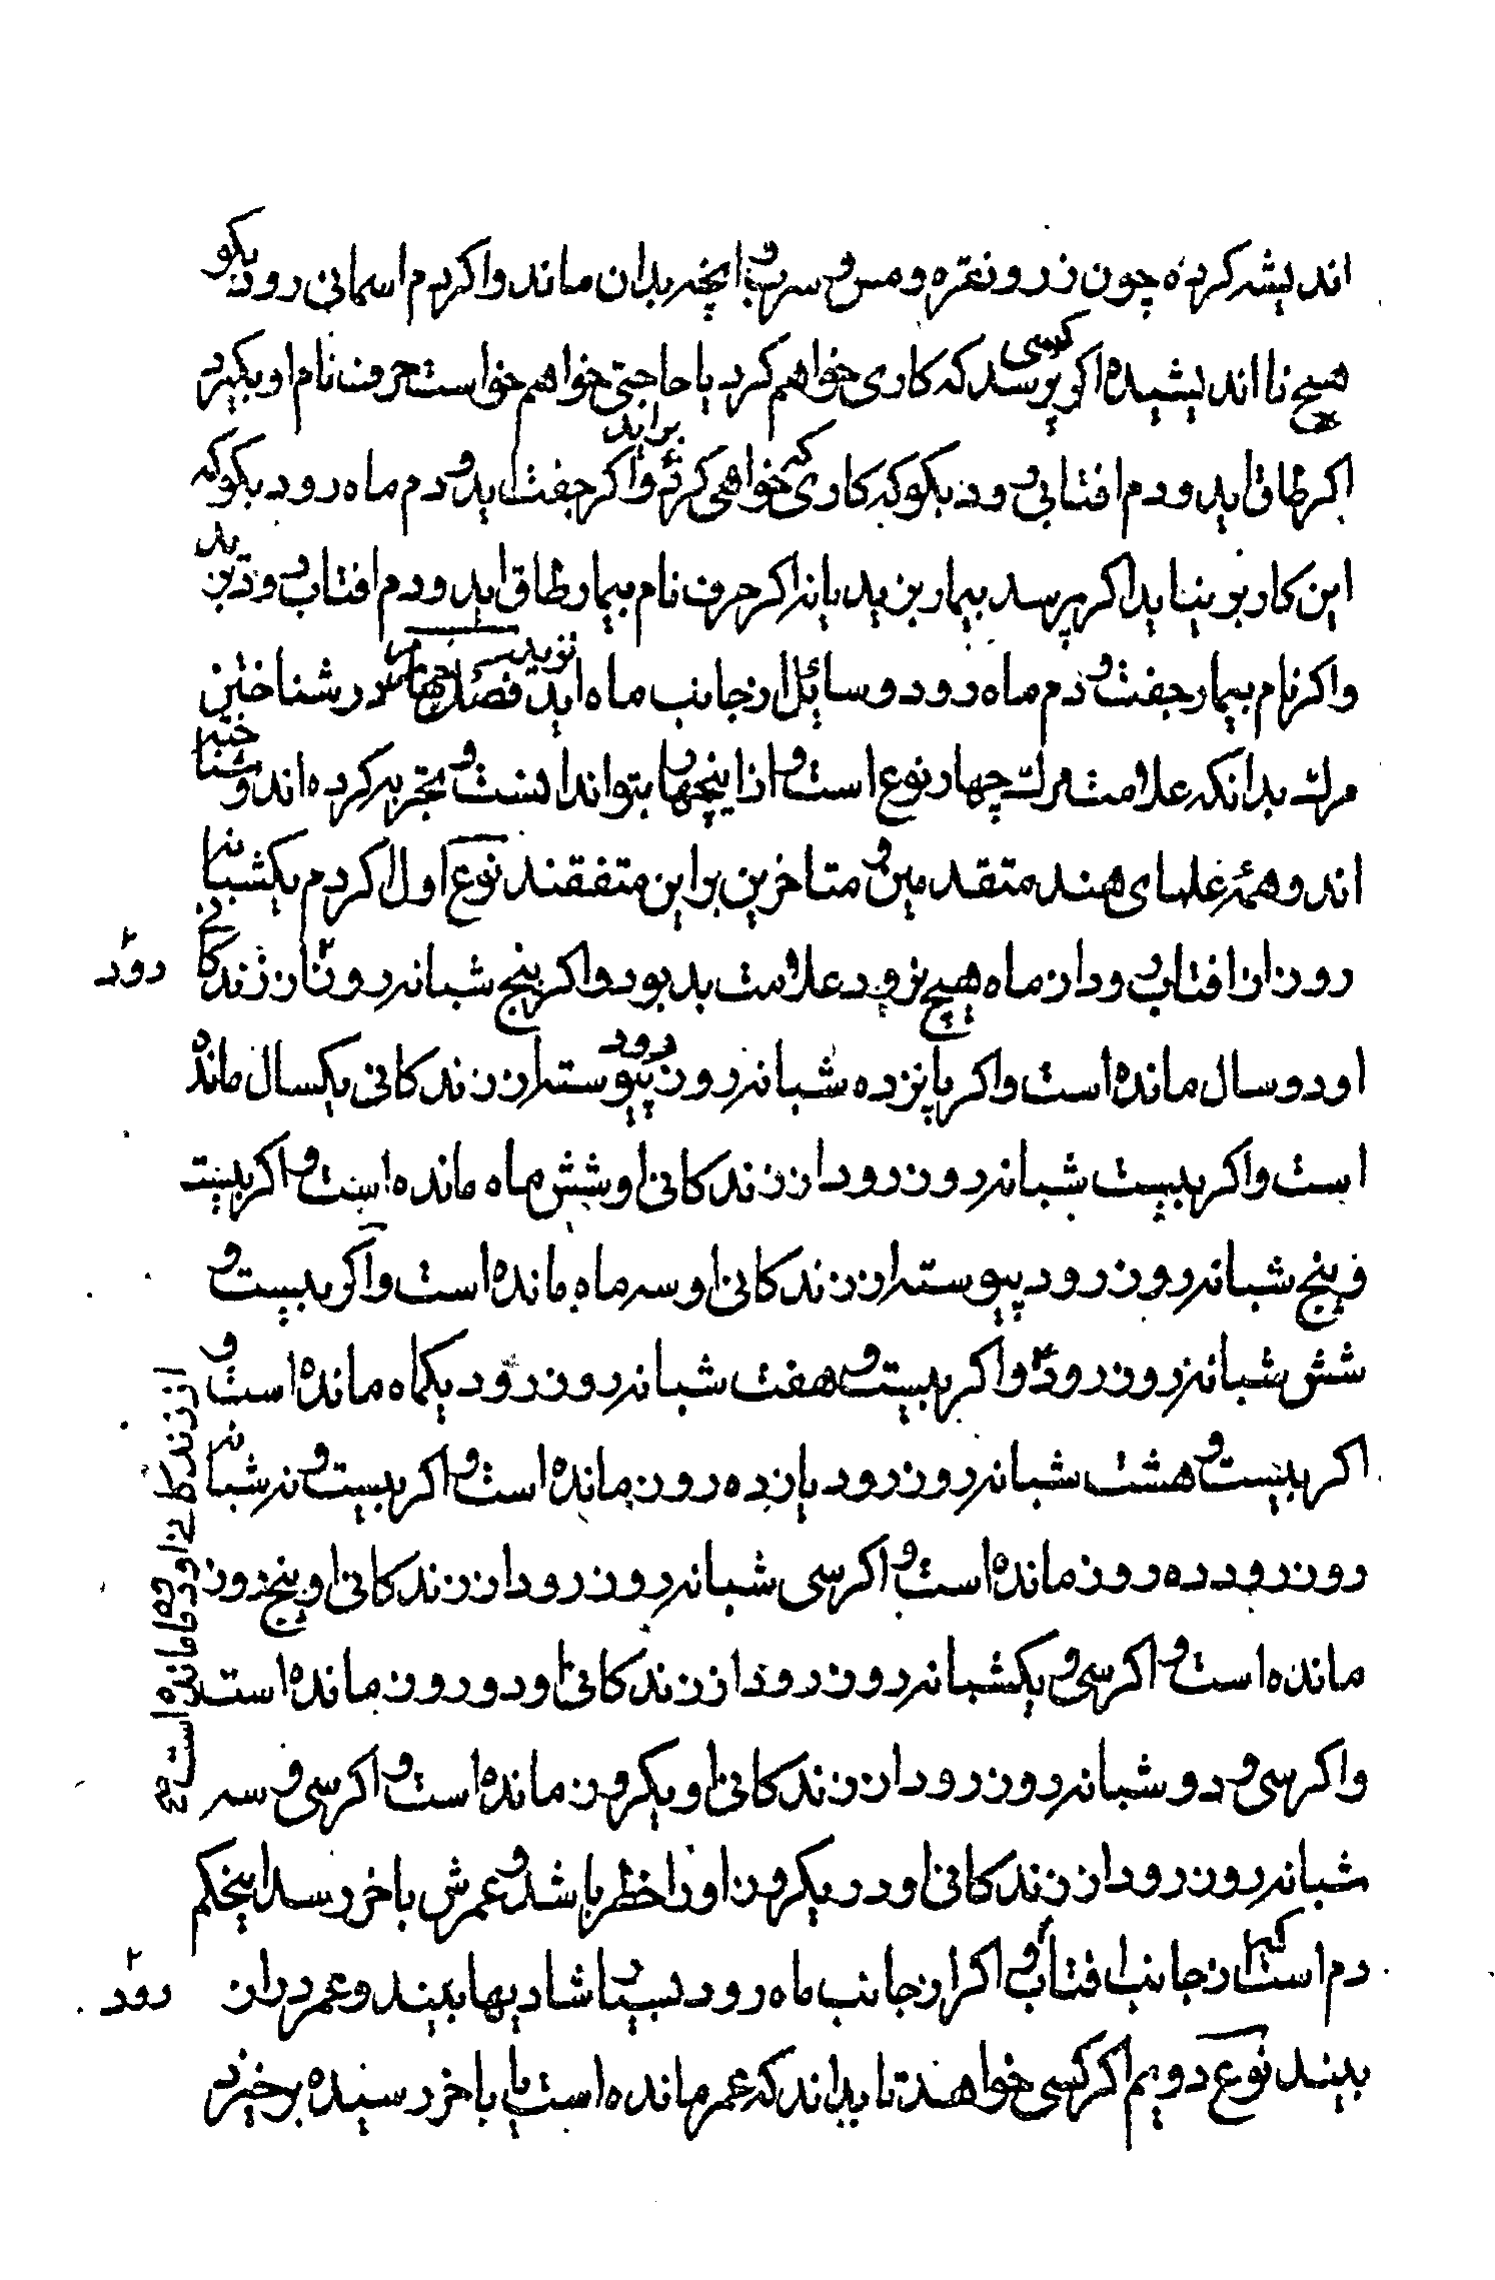 اندیشه کرده چون زر و نقره و مس و سرب و انچه بدان ماند و اکر دم اسمانی رود بکو
هیچ نا اندیشیده اکر کسی پرسد که کاری خواهم کرد یا حاجتی خواهم خواست حرف نام او بکیرد
اکر طاق اید و دم افتابی رود بکو که کاری که خواهی کرد براید و اکر جفت اید و دم ماه رود بکو که
این کار بر نیاید اکر پرسد بیمار بزید یا نه اکر حرف نام بیمار طاق اید و دم افتاب رود بزید
و اکر نام بیمار جفت و دم ماه رود و سایل از جانب ماه اید نزید فصل چهارم در شناختن
مرک بدانکه علامت مرک چهار نوع است و از اینچهار بتواند انست و تجربه کرده اند و شناخته
اند و همه علمای هند متقدمین و متاخرین براین متفقند نوع اول اکر دم یکشبانه
روز از افتاب رود از ماه هیچ نرود علامت بد بود و اکر پنج شبانه روز از زندکانی
رود
او دو سال مانده است و اکر پانزده شبانه روز رود پیوسته از زندکانی یکسال مانده
است و اکر بیست شبانه روز رود از زندکانی او شش ماه مانده است و اکر بیست
و پنج شبانه روز رود پیوسته از زندکانی او سه ماه مانده است و اکر بیست و
شش شبانه روز رود و اکر بیست و هفت شبانه روز رود یکماه مانده است و
از زندکانی او دو ماه مانده است صح
اکر بیست و هشت شبانه روز رود پانزده روز مانده است و اکر بیست و نه شبانه
روز رود ده روز مانده است و اکر سی شبانه روز رود از زندکانی او پنج روز
مانده است و اکر سی و یکشبانه روز رود از زندکانی او دو روز مانده است
و اکر سی و دو شبانه روز رود از زندکانی او یکروز مانده است و اکر سی و سه
شبانه روز رود از زندکانی او در یکروز او را خطر باشد و عمرش باخر رسد اینحکم
دم است که از جانب افتاب و اکر از جانب ماه رود بسیار شادیها بیند و عمر دراز
رود
بیند نوع دویم اکر کسی خواهد تا بداند که عمر مانده است یا باخر رسیده برخیزد